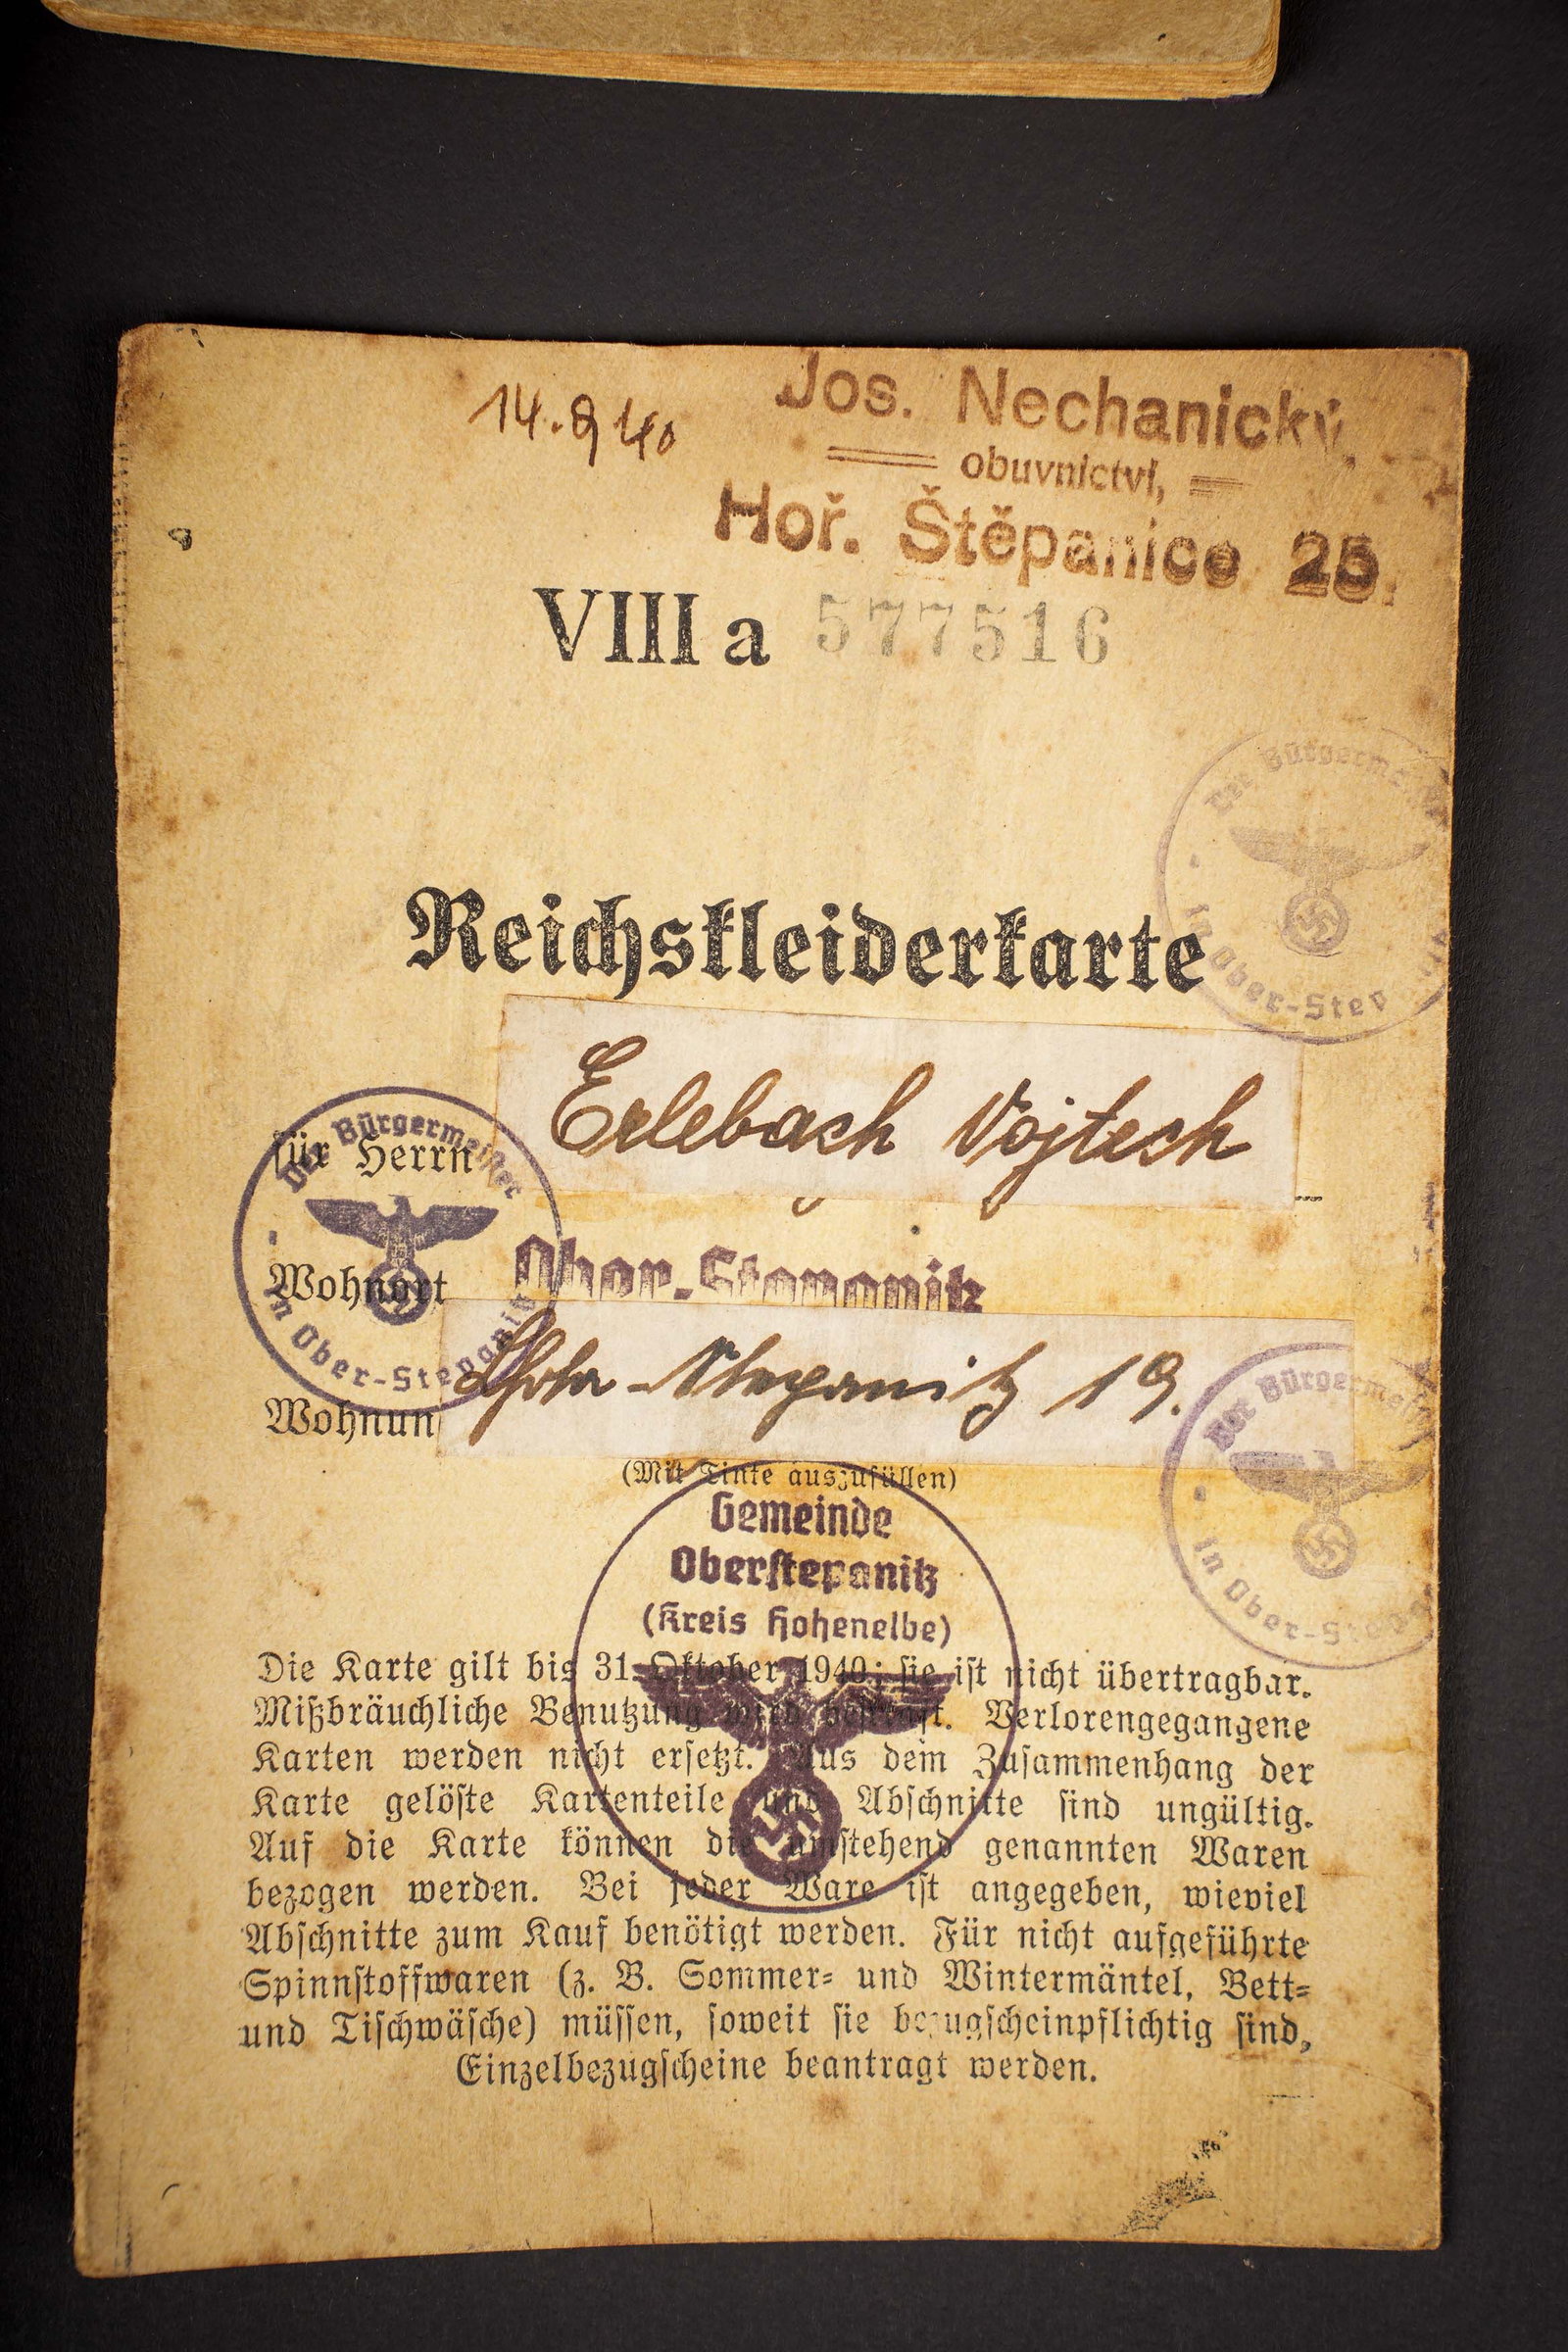 14. 9 40
Jos. Nechanický,
obuvnictví,
Hoř. Štěpanice 25.
VIII a 577516
Der Bürgermeister
in Ober-Step
Reichskleiderkarte
für Herrn Erlebach Vojtech
Der Bürgermeister
in Ober-Stepanitz
Wohnort Ober-Stepanitz
Wohnun -Stepanitz 19.
(Mit Tinte auszufüllen)
Der Bürgermeister
in Ober-Stepan
Gemeinde
Oberstepanitz
(Kreis Hohenelbe)
Die Karte gilt bis 31. Oktober 1940; sie ist nicht übertragbar.
Mißbräuchliche Benutzung wird bestraft. Verlorengegangene
Karten werden nicht ersetzt. Aus dem Zusammenhang der
Karte gelöste Kartenteile und Abschnitte sind ungültig.
Auf die Karte können die umstehend genannten Waren
bezogen werden. Bei jeder Ware ist angegeben, wieviel
Abschnitte zum Kauf benötigt werden. Für nicht aufgeführte
Spinnstoffwaren (z. B. Sommer- und Wintermäntel, Bett-
und Tischwäsche) müssen, soweit sie bezugscheinpflichtig sind,
Einzelbezugscheine beantragt werden.